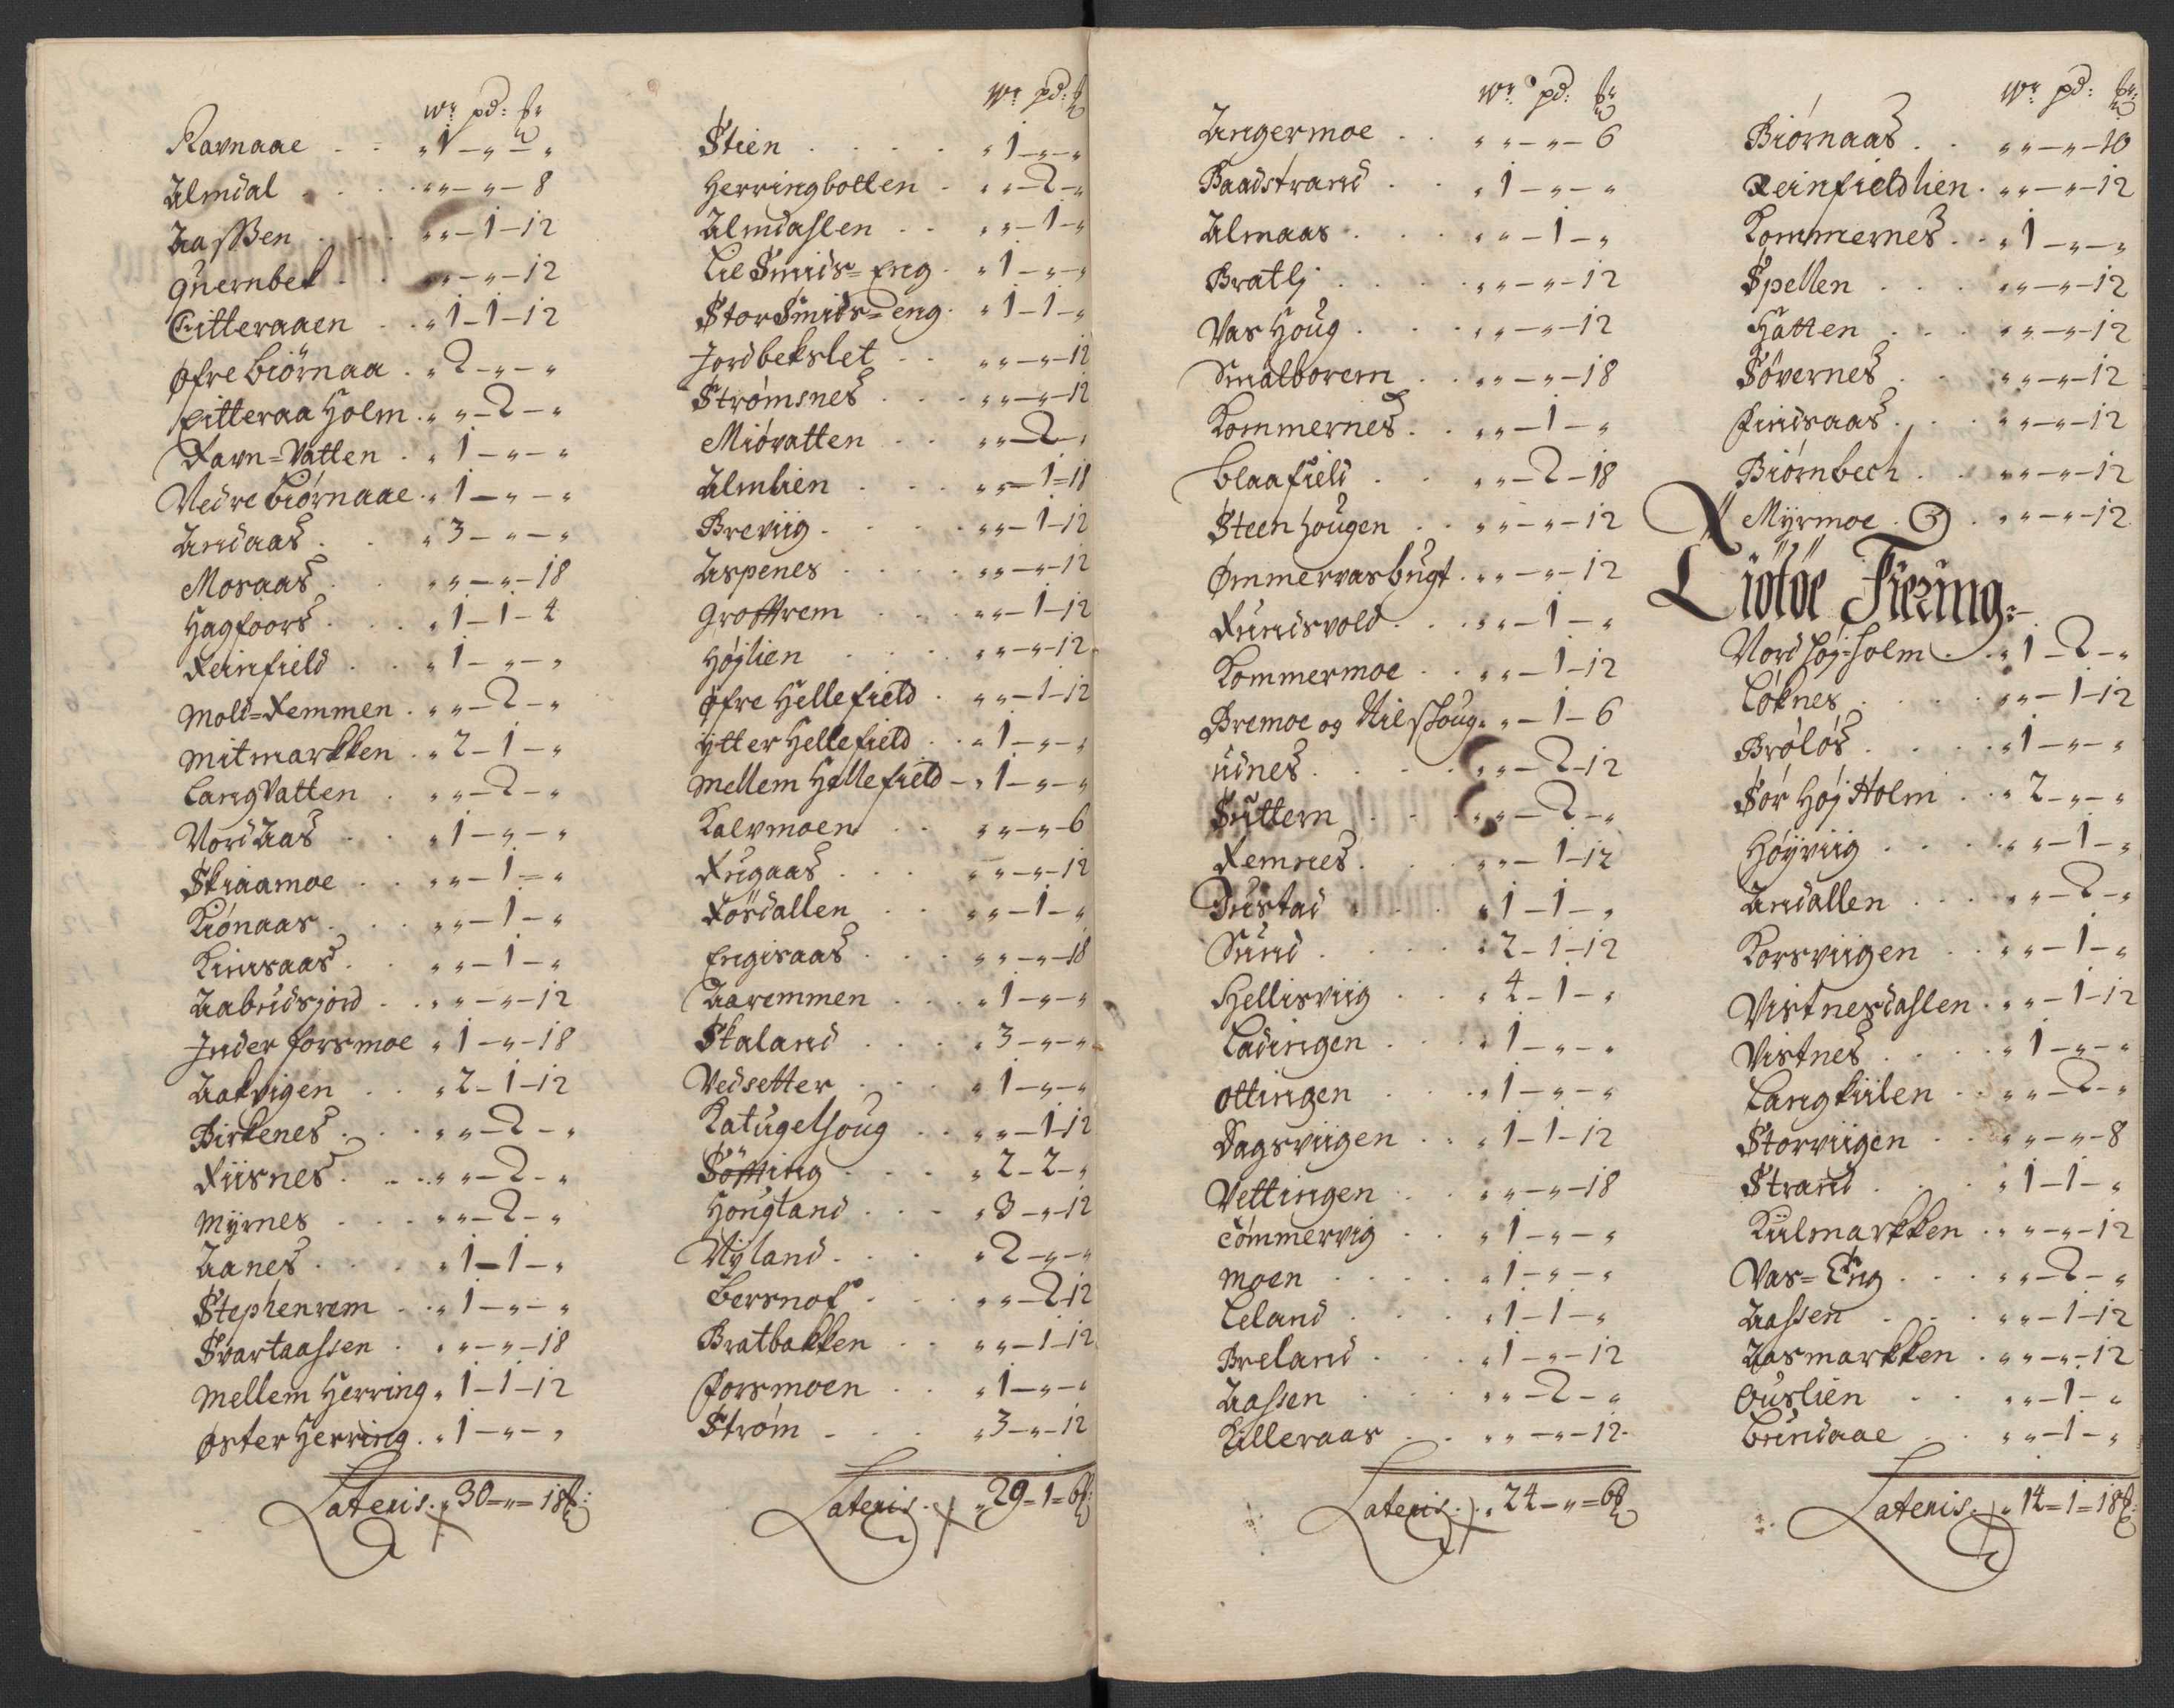 Wr pd: ℔
Ravnaae . . „ 1 – „ – „
Almdal . . . „ „ – „ – 8
Aassen . . . „ „ – 1 – 12
Quernbek . . „ „ – „ – 12
Citteraaen . . „ 1 – 1 – 12
Øfre biörnaa . „ 2 – „ – „
fitteraa Holm . „ „ – 2 – „
Ravn=Vatten . „ 1 – „ – „
Nedre biörnaae . „ 1 – „ – „
Andaas . . „ 3 – „ – „
Mosaas . . „ „ – „ – 18
Hagfoors . . „ 1 – 1 – 4
Reinfield . . „ 1 – „ – „
Mold=Remmen . „ „ – 2 – „
Mitmarkken . „ 2 – 1 – „
LangVatten . „ „ – 2 – „
NordAas . . „ 1 – „ – „
Skiaamoe . . „ „ – 1 – „
Kiönaas . . „ „ – 1 – „
Kinsaas . . „ „ – 1 – „
Aabudsjord . . „ „ – „ – 12
Inder forsmoe „ 1 – „ – 18
Aakvigen . . „ 2 – 1 – 12
Birkenes . . „ „ – 2 – „
Riisnes . . „ „ – 2 – „
Myrnes . . . „ „ – 2 – „
Aanes . . . „ 1 – 1 – „
Stephenrem . . „ 1 – „ – „
Svartaassen . „ „ – „ – 18
Mellem Herring „ 1 – 1 – 12
Øster Herring . „ 1 – „ – „
Lateris . „ 30 = „ = 18 ℔:
Wr pd: ℔
Stien . . . . „ 1 – „ – „
Herringbotten . „ „ – 2 – „
Almdahlen . . „ „ – 1 – „
Lil Smids=Eng . „ 1 – „ – „
StorSmids=eng . „ 1 – 1 – „
Jordbekslet . . „ „ – „ – 12
Strömsnes . . „ „ – „ – 12
Miövatten . . „ „ – 2 – „
Almlien . . . „ „ – 1 = 18
Breviig . . . „ „ – 1 – 12
Aspenes . . . „ „ – „ – 12
Grofftrem . . „ „ – 1 – 12
Højlien . . . „ „ – „ – 12
Øfre Hellefield . „ „ – 1 – 12
Ytter Hellefield . „ 1 – „ – „
Mellem Hellefield – „ 1 – „ – „
Kalvmoen . . „ „ – „ – 6
Rugaas . . . „ „ – „ – 12
Rösdallen . . „ „ – 1 – „
Engisaas . . „ „ – „ – 18
Aaremmen . . . „ 1 – „ – „
Skaland . . . „ 3 – „ – „
Vedsetter . . . „ 1 – „ – „
Katugelhoug . . „ „ – 1 – 12
Söffting . . . „ 2 – 2 – „
Hougland . . . „ 3 – „ – 12
Nyland . . . „ 2 – „ – „
Bersnof . . . „ „ – 2 – 12
Bratbakken . . „ „ – 1 – 12
Forsmoen . . „ 1 – „ – „
Ström . . . „ 3 – „ – 12
Lateris . „ 29 = 1 = 6 ℔:
Wr pd: ℔
Angermoe . . „ „ – „ – 6
Baadstrand . . „ 1 – „ – „
Almaas . . . „ „ – 1 – „
Bratlj . . . „ „ – „ – 12
Vas Houg . . . „ „ – „ – 12
Smalborem . . „ „ – „ – 18
Kommernes . . „ „ – 1 – „
Blaafield . . „ „ – 2 – 18
Steenhougen . . „ „ – „ – 12
Ømmervasbugt . „ „ – „ – 12
Rundsvold . . „ „ – 1 – „
Kommermoe . . „ „ – 1 – 12
Bremoe og Nielshoug . „ „ – 1 – 6
Udnes . . . „ „ – 2 – 12
Suttern . . . „ „ – 2 – „
Remnes . . . „ „ – 1 – 12
Dustad . . . „ 1 – 1 – „
Sund . . . . „ 2 – 1 – 12
Hellisviig . . „ 4 – 1 – „
Ladingen . . . „ 1 – „ – „
Ottingen . . . „ 1 – „ – „
Dagsviigen . . „ 1 – 1 – 12
Vettingen . . „ „ – „ – 18
Cömmervig . . „ 1 – „ – „
Moen . . . . „ 1 – „ – „
Leland . . . „ 1 – 1 – „
Breland . . . „ 1 – „ – 12
Aassen . . . „ „ – 2 – „
Killeraas . . „ „ – „ – 12
Lateris . „ 24 – „ = 6 ℔
Wr pd: ℔:
Biörnaas . . „ „ – „ – 10
Reinfieldlien . „ „ – „ – 12
Kommernes . . „ 1 – „ – „
Spellen . . . „ „ – „ – 12
Hatten . . . „ „ – „ – 12
Sövernes . . „ „ – „ – 12
Findsaas . . „ „ – „ – 12
Biörnbech . . „ „ – „ – 12
Myrmoe . „ „ – „ – 12
Tiötöe Fiering:
Nord höj=holm . „ 1 – 2 – „
Löknes . . . „ „ – 1 – 12
Brölös . . . „ 1 – „ – „
Sör Höj Holm . . „ 2 – „ – „
Höyviig . . . „ „ – 1 – „
Andallen . . . „ „ – 2 – „
Korsviigen . . „ „ – 1 – „
Vistnesdahlen . „ „ – 1 – 12
Vistnes . . . „ 1 – „ – „
Langkiilen . . „ „ – 2 – „
Storviigen . . „ „ – „ – 8
Strand . . . „ 1 – 1 – „
Kiilmarkken . „ „ – „ – 12
Vas=Eng . . . „ „ – 2 – „
Aassen . . . „ „ – 1 – 12
Aasmarkken . „ „ – „ – 12
Ouslien . . „ „ – 1 – „
Bundaae . . „ „ – 1 – „
Lateris . „ 14 = 1 = 18 ℔: